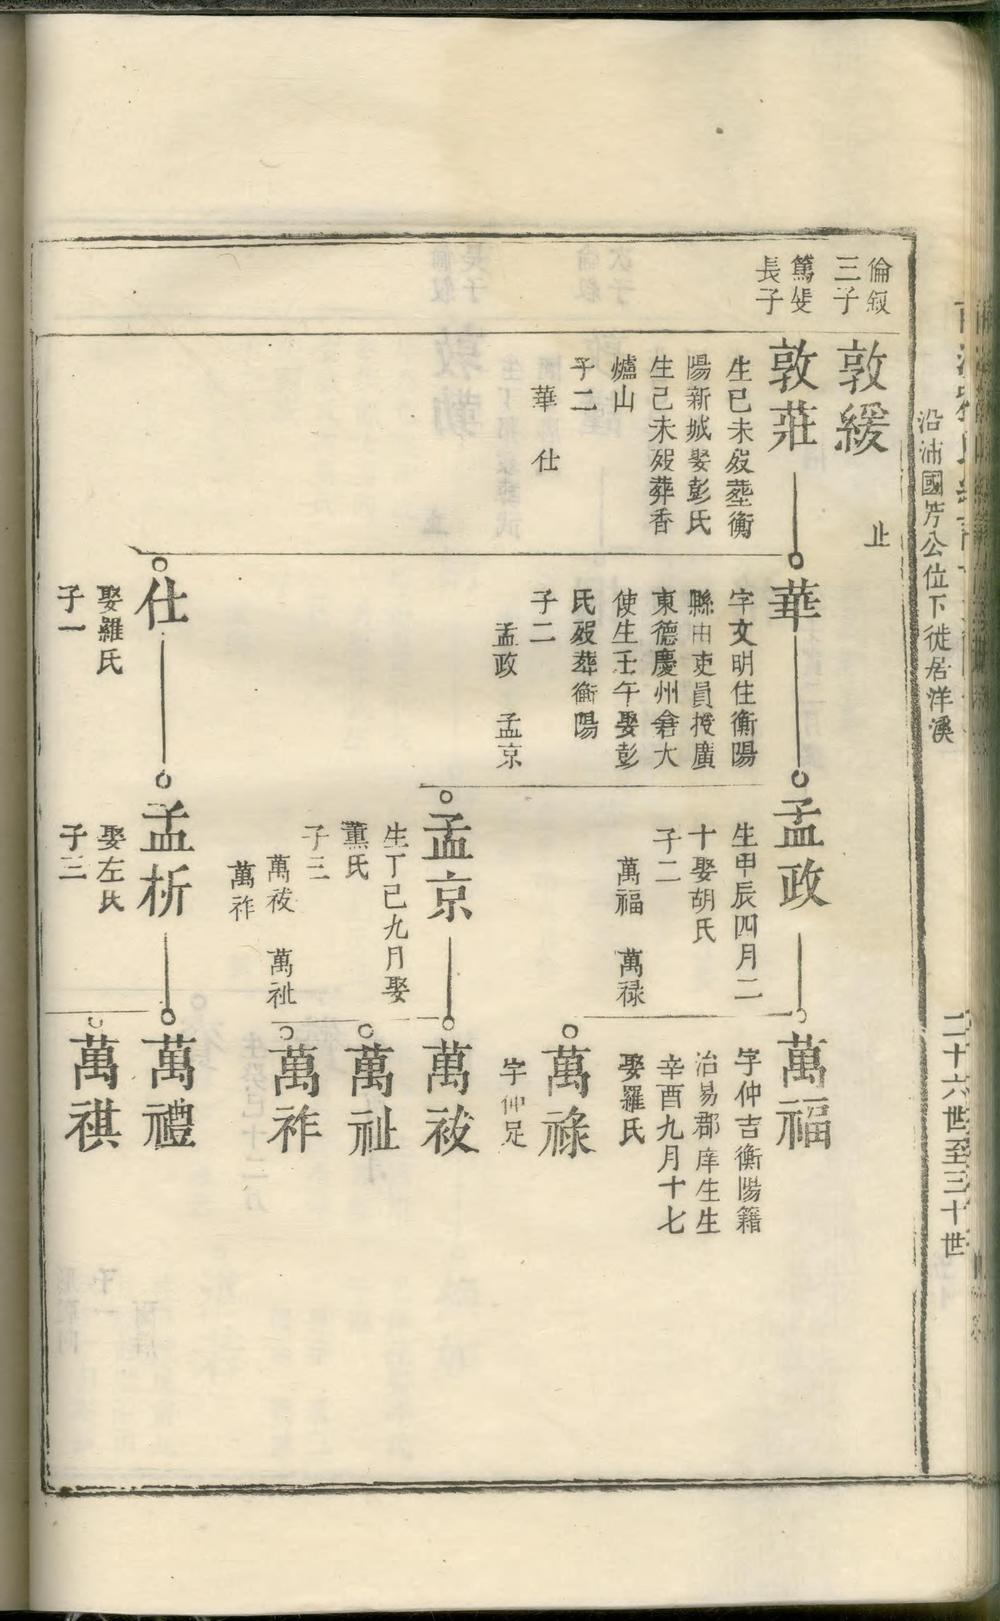 沿浦國芳公位下徙居洋溪
二十六世至三十世
倫叙
三子
敦緩
止
篤斐
長子
敦莊
生已未歿葬衡
陽新城娶彭氏
生己未歿葬香
爐山
子二
華 仕
華
字文明住衡陽
縣由吏員授廣
東德慶州倉大
使生壬午娶彭
氏歿葬衡陽
子二
孟政 孟京
孟政
生甲辰四月二
十娶胡氏
子二
萬福 萬禄
萬福
字仲吉衡陽籍
治易郡庠生生
辛酉九月十七
娶羅氏
萬祿
字仲足
孟京
生丁己九月娶
薫氏
子三
萬袚 萬祉
萬祚
萬袚
萬祉
萬祚
仕
娶羅氏
子一
孟析
娶左氏
子三
萬禮
萬祺